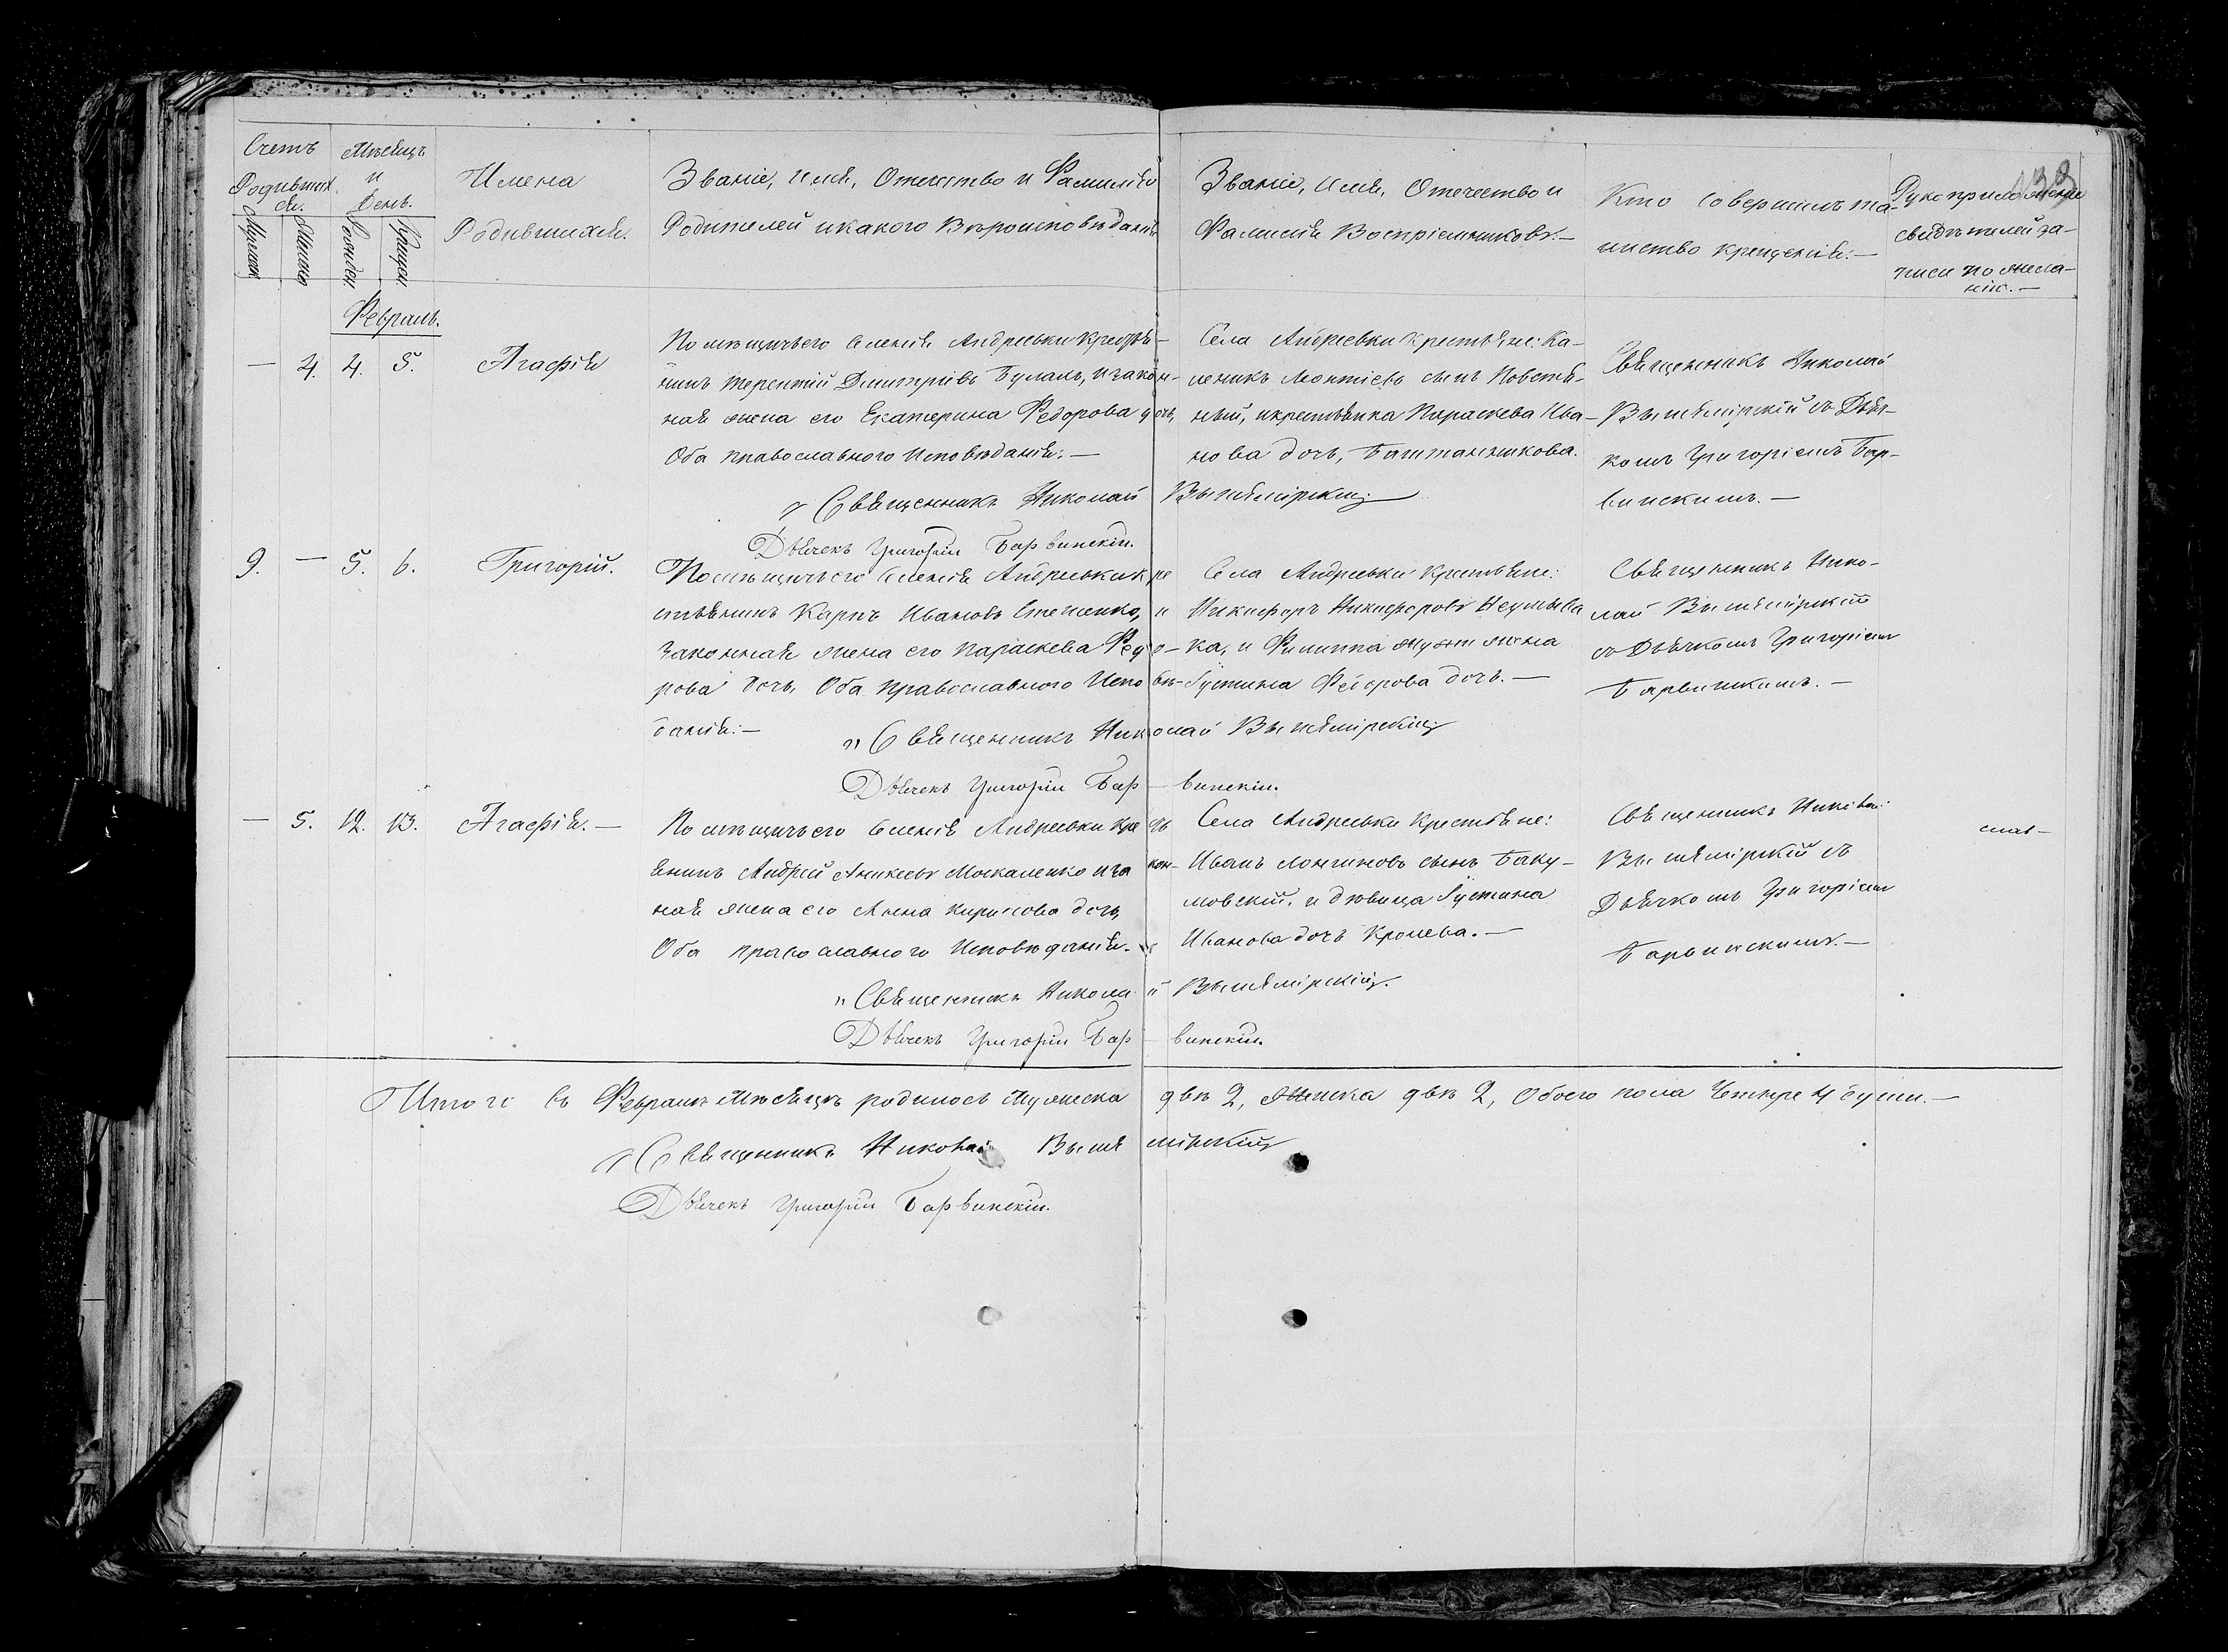 Счетъ
Родивших
ся.
Мѣсяцъ
и
День.
Имена
Родившихся.
Званіе, имя, Отечество и Фамилія
Родителей и какого Вѣроисповѣданія
Званіе, имя, Отечество и
Фамилія Воспріемниковъ.—
Кто совершилъ та-
инство крещенія:—
Рукоприложеніе
свидѣтелей за-
писи по жела-
нію.—
Рожден
Крещен
Февраль.
— 4. 4. 5. Агафія
Помѣщичьего селенія Андреевки Крестья-
нинъ Терентій Димитріевъ Булахъ, и закон-
ная жена его Екатерина Федорова дочь,
Оба православного Исповѣданія:—
Села Андреевки Крестьяне: Ка-
леникъ Леонтіевъ сынъ Повстя-
ный, и крестьянка Параскева Ива-
нова дочь, Баштанникова.
Священникъ Николай
Вышемірскій съ Дьяч-
комъ Григоріемъ Бар-
винскимъ.—
Священникъ Николай Вышемірскій
Дьячекъ Григорій Барвинскій.
9. — 5. 6. Григорій.
Помѣщичьего селенія Андреевки кре
стьянинъ Карпъ Ивановъ Стеценко, и
Законная жена его Параскева Федо-
рова дочь, Оба православного Исповѣ-
данія:—
Села Андреевки Крестьяне:
Никифоръ Никифоровъ Неумыва
ка, и Филиппа жена
Густина Федорова дочь.—
Священникъ Нико-
лай Вышемірскій
съ Дьячкомъ Григоріем
Барвинскимъ.—
Священникъ Николай Вышемірскій
Дьячекъ Григорій Бар—винскій.
— 5. 12. 13. Агафія.—
Помѣщичьего селенія Андреевки Кресть
янинъ Андрей Аникеевъ Москаленко и закон-
ная жена его Анна Кирилова дочь,
Оба православного Исповѣданія.—
Села Андреевки Крестьяне:
Иванъ Лонгиновъ сынъ Баку-
мовскій, и дѣвица Густина
Иванова дочь Кролева.—
Священникъ Николай
Вышемірскій съ
Дьячкомъ Григоріем
Барвинскимъ.—
Священникъ Николай Вышемірскій.
Дьячекъ Григорій Бар—винскій.
Итого въ Февралѣ Мѣсяцѣ родилось Мужеска двѣ 2, Женска двѣ 2, Обоего пола Четыре 4 души.—
Священникъ Николай Вышемірскій
Дьячекъ Григорій Барвинскій.